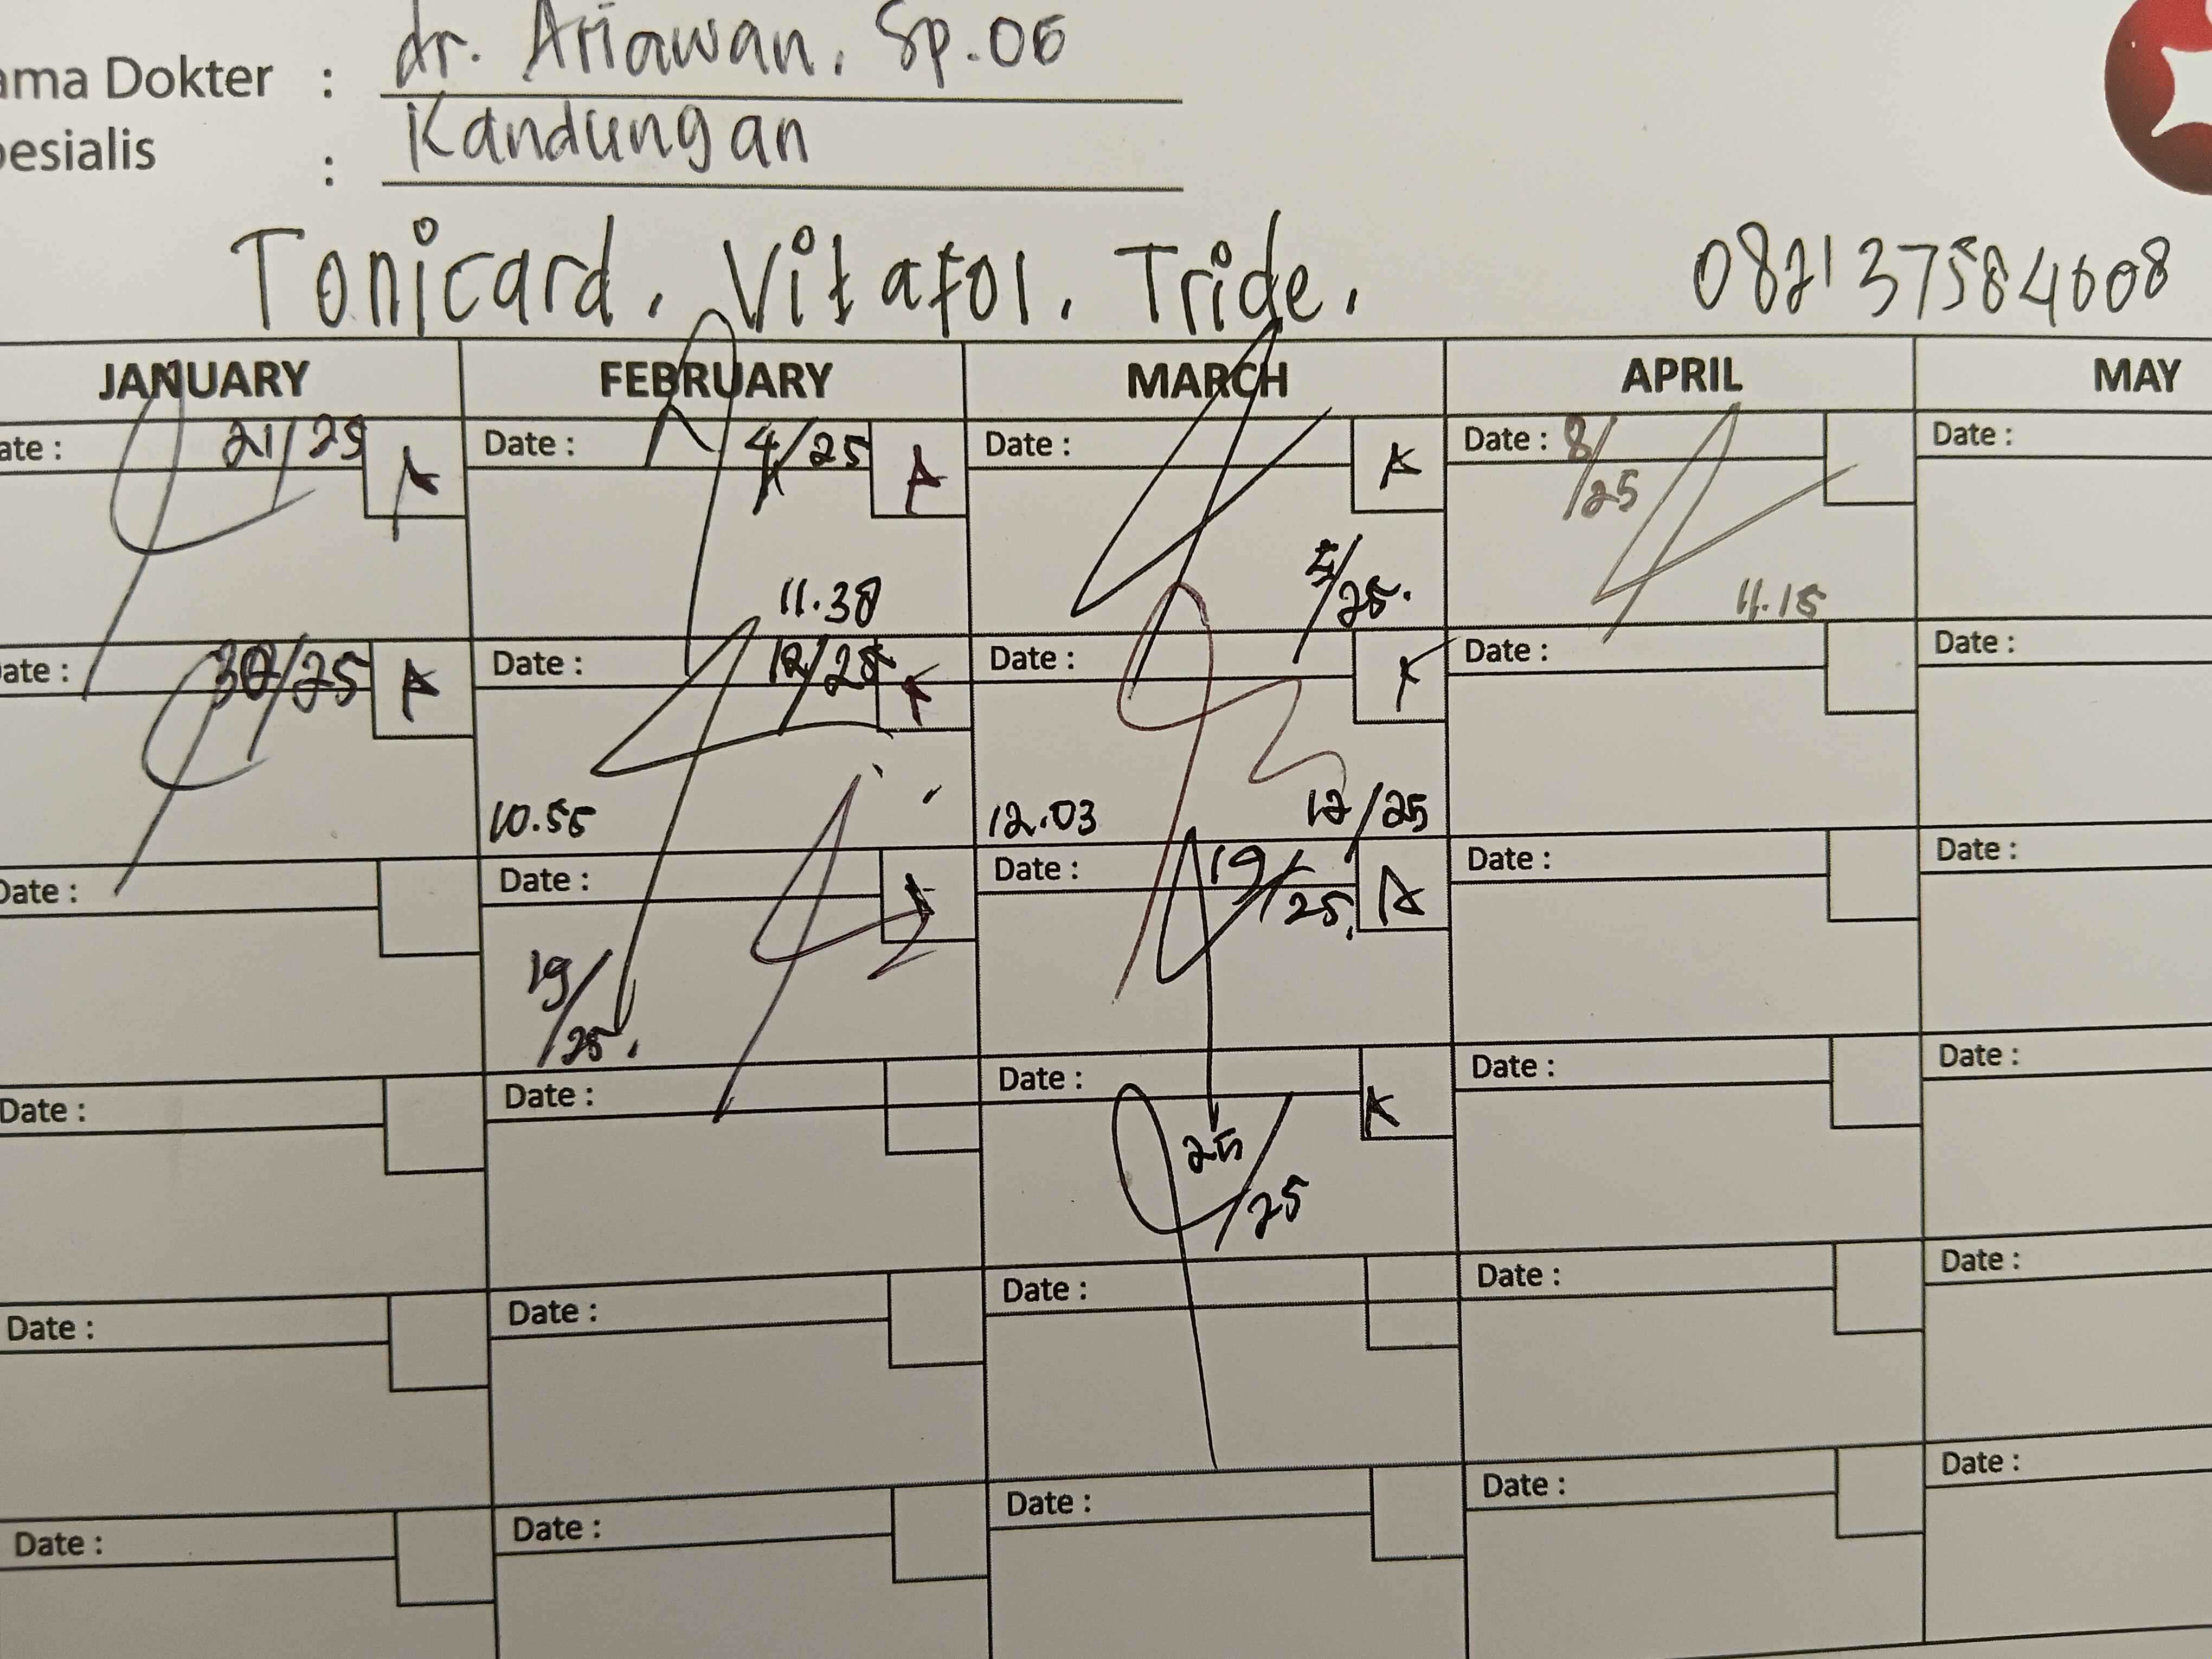 ama Dokter : dr. Ariawan. Sp.OG
pesialis : Kandungan
Tonicard. Vitafol. Tride. 082137584608
JANUARY FEBRUARY MARCH APRIL MAY
ate : 21/25 A Date : 4/25 A Date : A Date : 8/25 Date :
11.30 5/25. 11.15
ate : 30/25 A Date : 12/25 Date : Date : Date :
10.55 12.03 12/25
Date : Date : Date : 19/25. A Date : Date :
19/25.
Date : Date : Date : Date : Date :
25/25
Date : Date : Date : Date : Date :
Date : Date : Date : Date : Date :